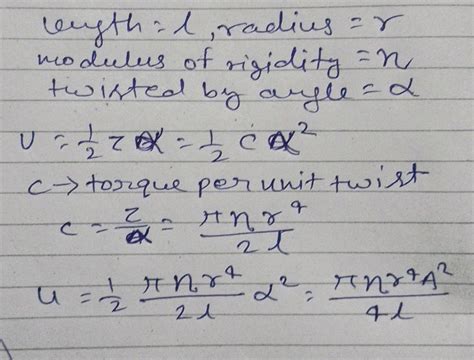 length = l, radius = r
modulus of rigidity = n
twisted by angle = α
U = 1/2 τα = 1/2 cα²
c → torque per unit twist
c = τ/α = πnr⁴/2l
u = 1/2 πnr⁴/2l α² = πnr⁴A²/4l